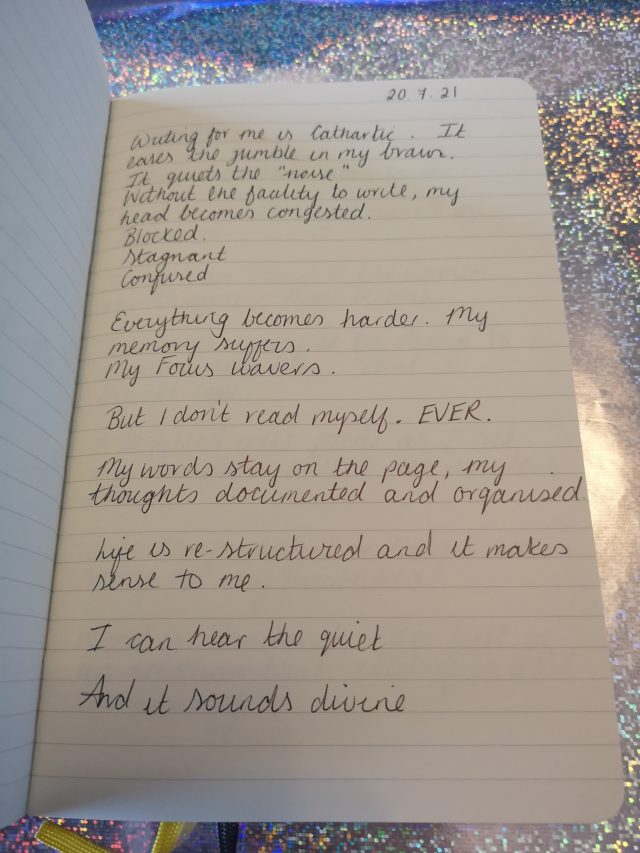 20.7.21
Writing for me is Cathartic. It
eases the jumble in my brain.
It quiets the "noise"
Without the facility to write, my
head becomes congested.
Blocked.
Stagnant
Confused
Everything becomes harder. My
memory suffers.
My Focus wavers.
But I don't read myself. EVER.
My words stay on the page, my
thoughts documented and organised.
Life is re-structured and it makes
sense to me.
I can hear the quiet
And it sounds divine